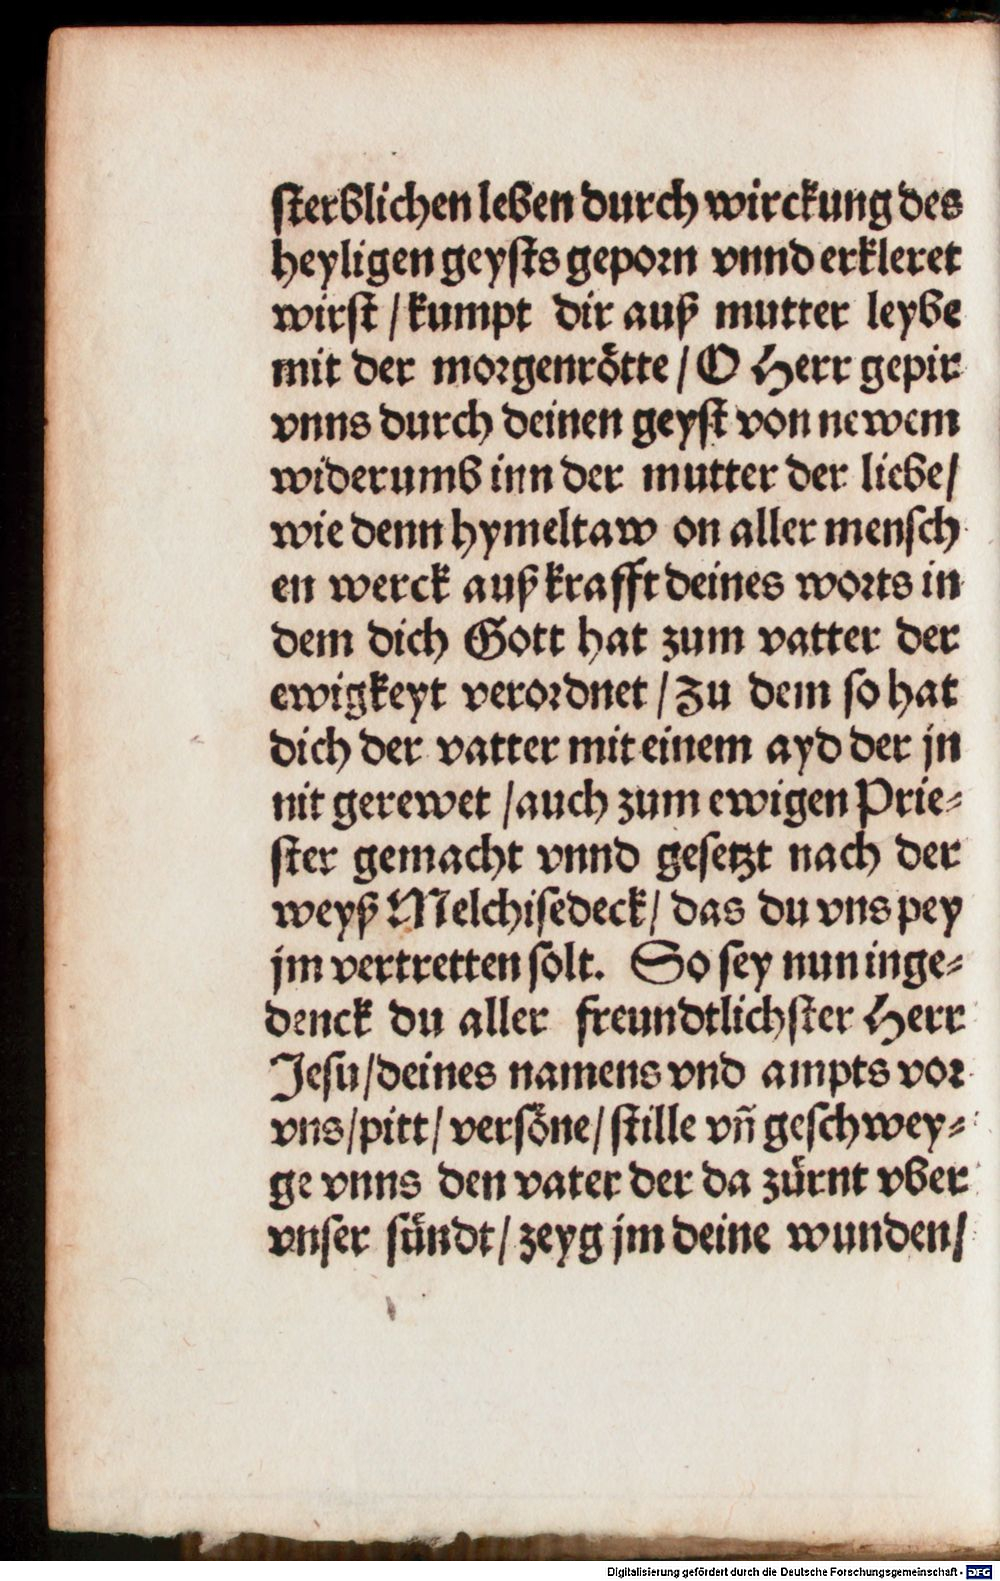 sterblichen leben durch wirckung des
heyligen geysts geporn vnnd erkleret
wirst / kumpt dir auß mutter leybe
mit der morgenrötte / O Herr gepir
vnns durch deinen geyst von newem
widerumb inn der mutter der liebe /
wie denn hymeltaw on aller mensch
en werck auß krafft deines worts in
dem dich Gott hat zum vatter der
ewigkeyt verordnet / Zu dem so hat
dich der vatter mit einem ayd der jn
nit gerewet / auch zum ewigen Prie⸗
ster gemacht vnnd gesetzt nach der
weyß Melchisedeck / das du vns pey
jm vertretten solt. So sey nun inge⸗
denck du aller freundtlichster Herr
Jesu / deines namens vnd ampts vor
vns / pitt / versöne / stille vñ geschwey⸗
ge vnns den vater der da zürnt vber
vnser sündt / zeyg jm deine wunden /
Digitalisierung gefördert durch die Deutsche Forschungsgemeinschaft - DFG